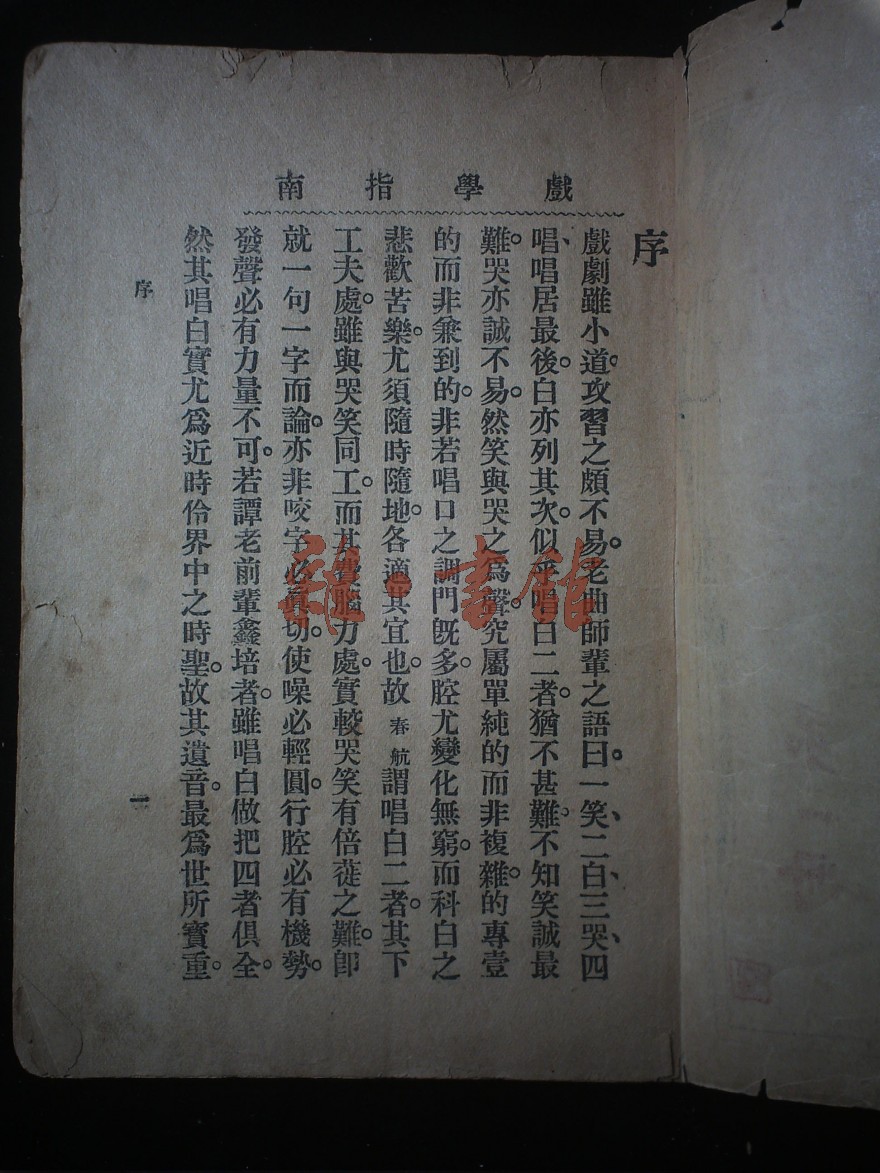 戲學指南
序
戲劇雖小道。攻習之頗不易。老曲師輩之語曰。一笑、二白、三哭、四
唱、唱居最後。白亦列其次。似乎唱白二者。猶不甚難。不知笑誠最
難。哭亦誠不易。然笑與哭之爲聲。究屬單純的而非複雜。的專壹
的而非兼到的。非若唱口之調門旣多。腔尤變化無窮。而科白之
悲歡苦樂。尤須隨時隨地。各適其宜也。故春航謂唱白二者。其下
工夫處。雖與哭笑同工。而其費腦力處。實較哭笑有倍蓰之難。卽
就一句一字而論。亦非咬字必眞切。使噪必輕圓。行腔必有機勢。
發聲必有力量不可。若譚老前輩鑫培者。雖唱白做把四者俱全。
然其唱白實尤爲近時伶界中之時聖。故其遺音。最爲世所寳重。
序
一
雜·書館